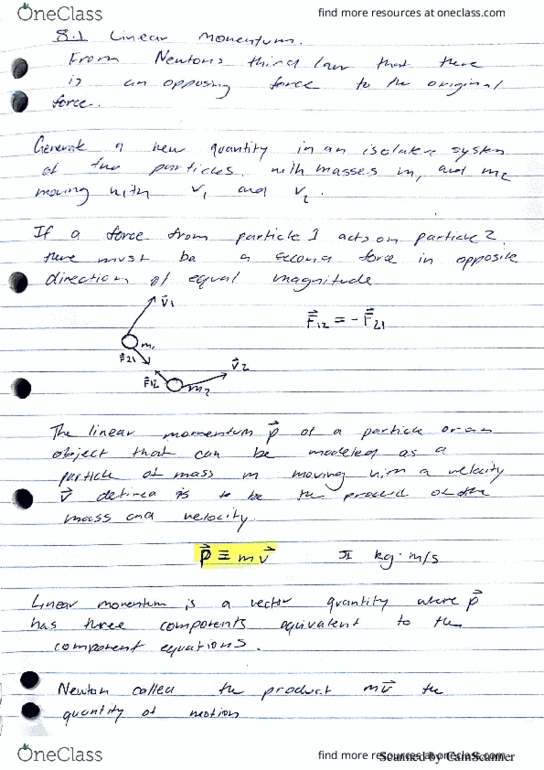 OneClass
find more resources at oneclass.com
8.1 Linear Momentum.
From Newtons third law that there
is an opposing force to the original
force.
Generate a new quantity in an isolate system
of two particles. with masses m₁ and m₂
moving with v₁ and v₂.
If a force from particle 1 acts on particle 2.
there must be a second force in opposite
direction of equal magnitude
v⃗1
F⃗12 = - F⃗21
m₁
F⃗21
F⃗12
m₂
v⃗2
The linear momentum p⃗ of a particle or an
object that can be modeled as a
particle of mass m moving with a velocity
v⃗ defined is to be the product of the
mass and velocity.
p⃗ ≡ mv⃗ SI kg·m/s
Linear momentum is a vector quantity where p⃗
has three components equivalent to the
component equations.
Newton called the product mv⃗ the
quantity of motion
OneClass
find more resources at oneclass.com
Scanned by CamScanner